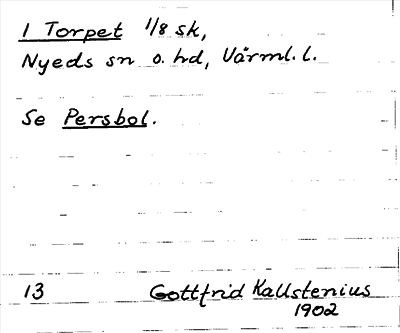 1 Torpet 1/8 sk,
Nyeds sn o. hd, Värml. l.
Se Persbol.
13 Gottfrid Kallstenius
1902